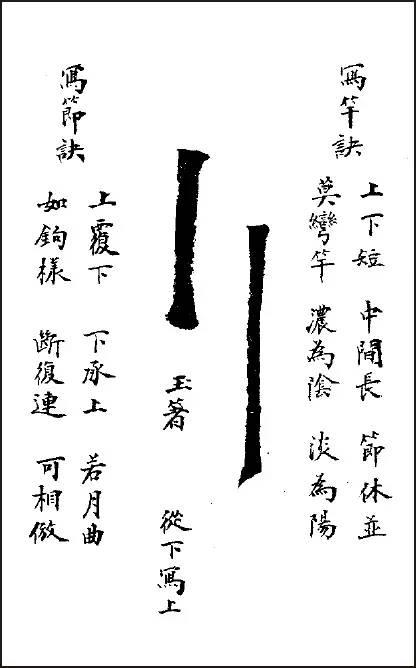 寫竿訣
上下短 中間長 節休並
莫彎竿 濃為陰 淡為陽
玉箸 從下寫上
寫節訣
上覆下 下承上 若月曲
如鉤樣 斷復連 可相倣